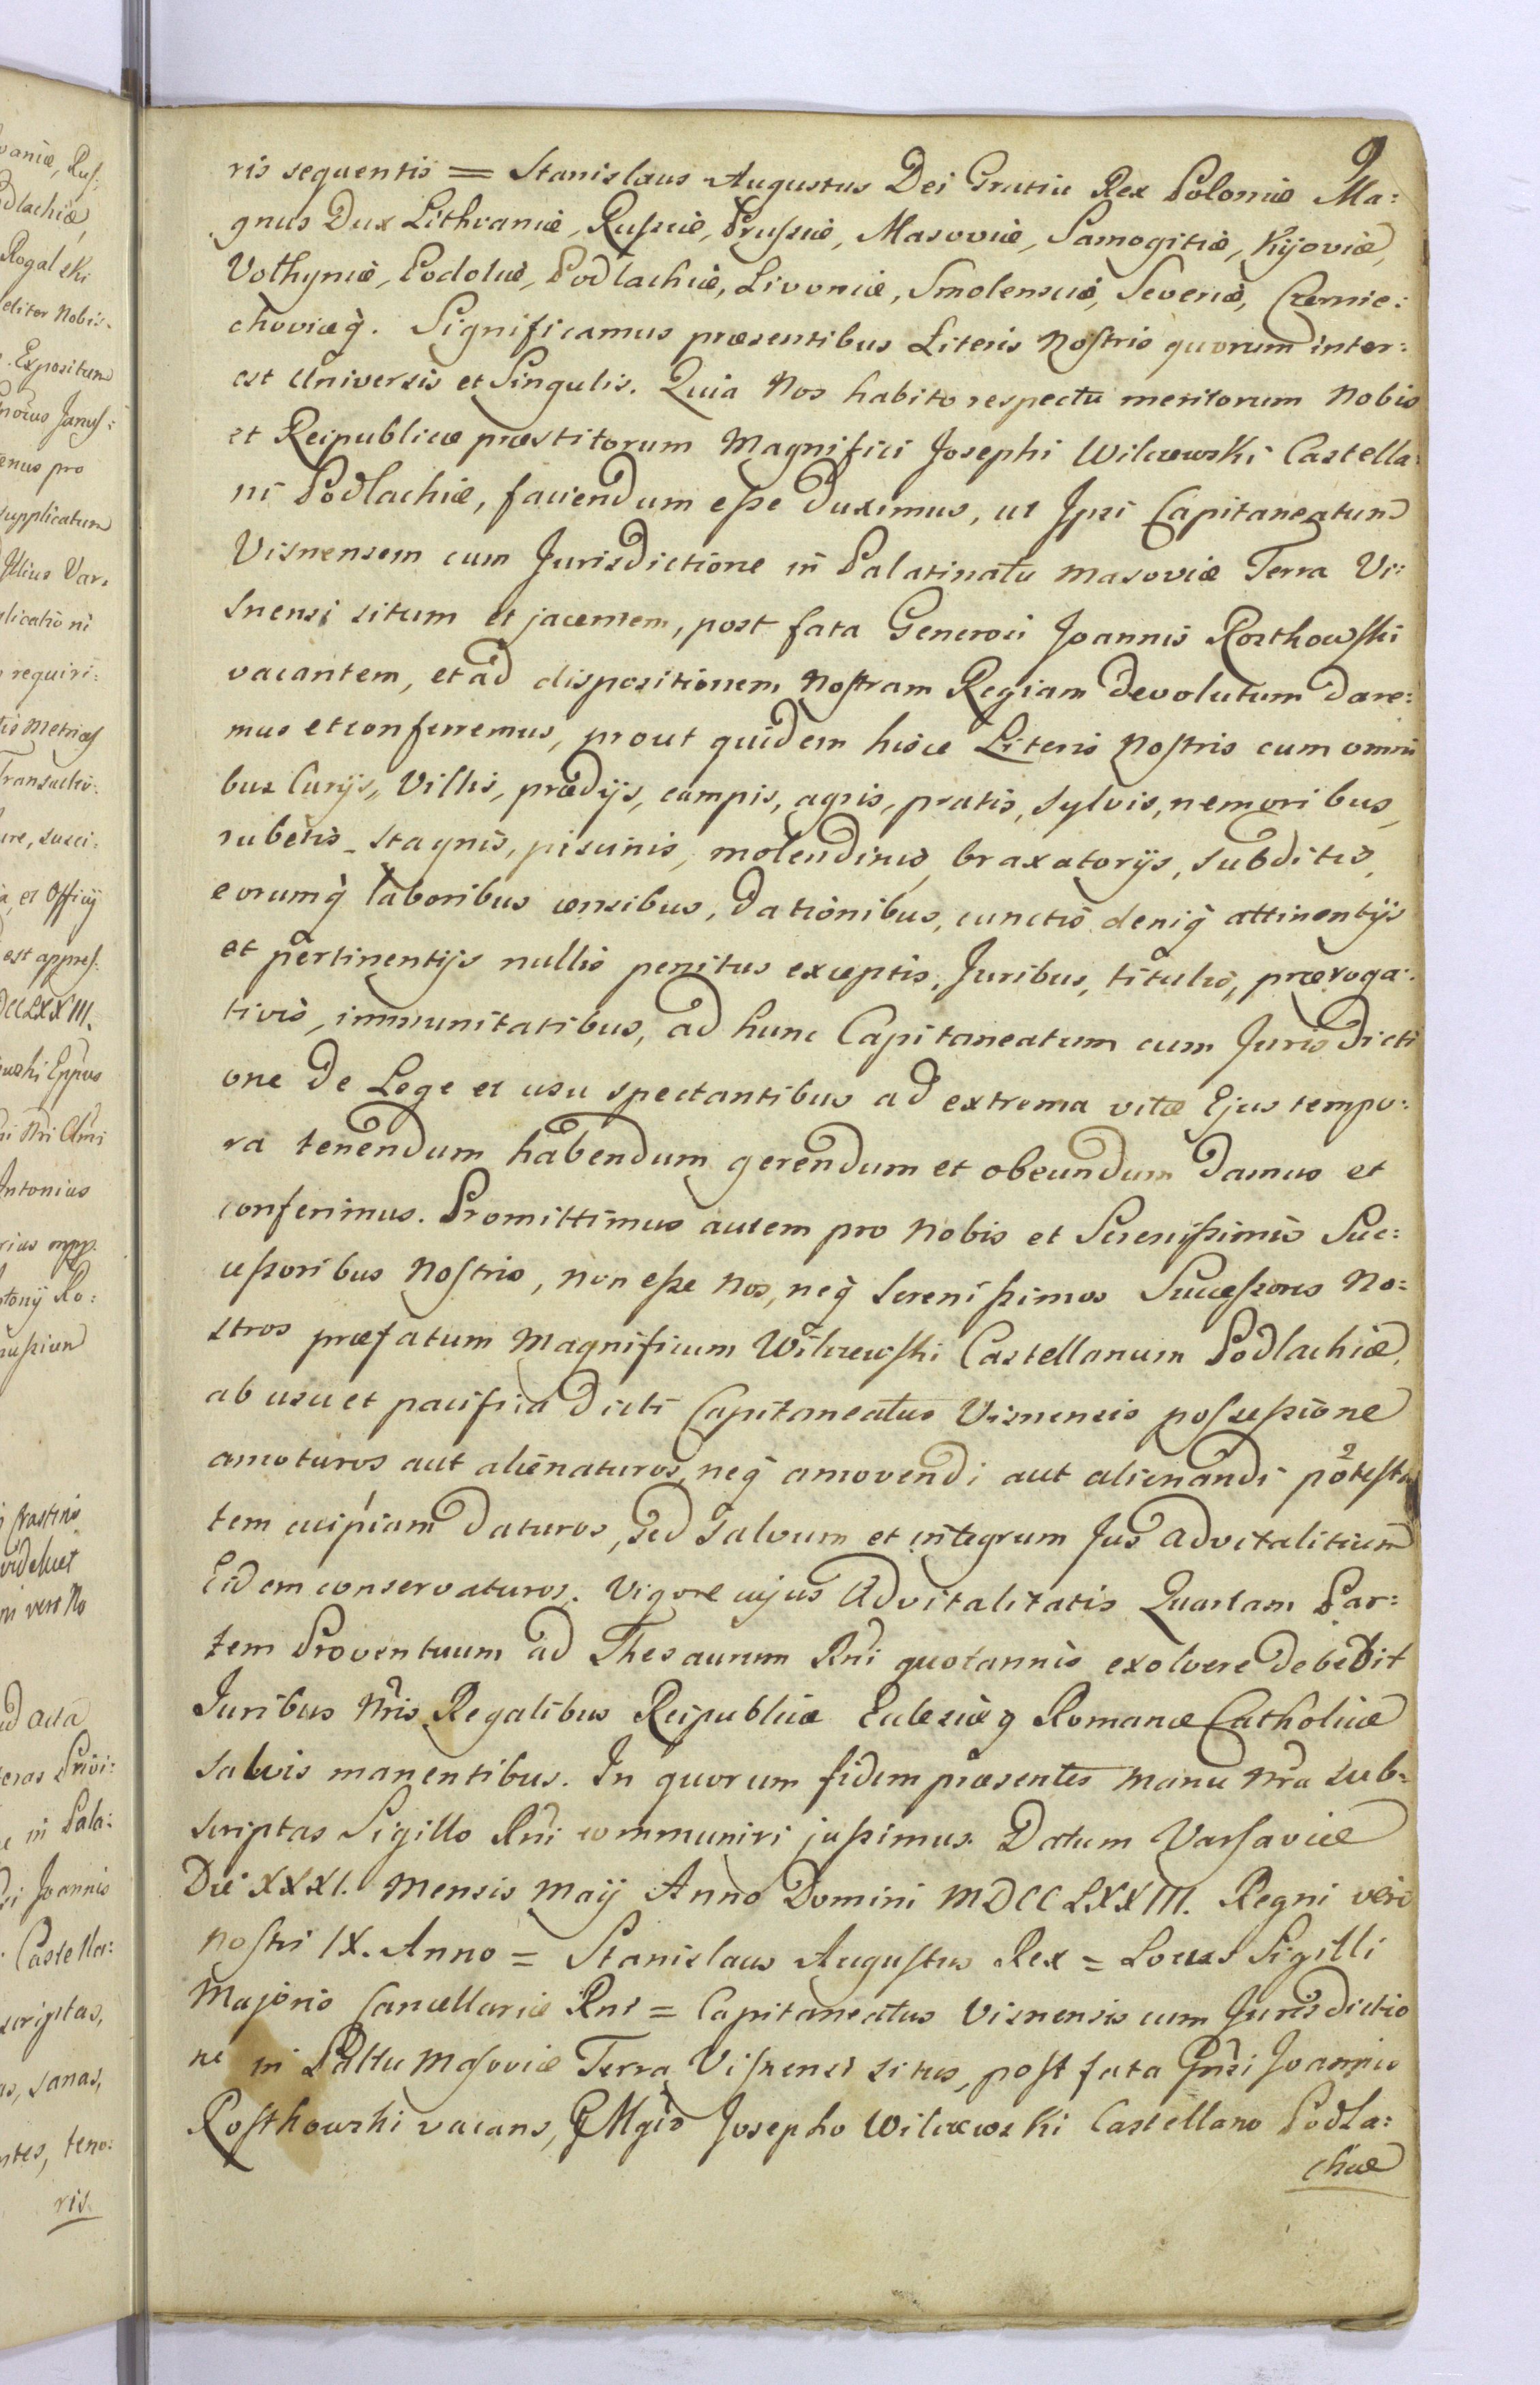 9
ris sequentis = Stanislaus Augustus Dei Gratia Rex Poloniæ Ma:
gnus Dux Lithvaniæ, Russiæ, Prussiæ, Masoviæ, Samogitiæ, Kijoviæ,
Volhyniæ, Podoliæ, Podlachiæ, Livoniæ, Smolensciæ, Severiæ, Czernie:
choviæq̀. Significamus præsentibus Literis Nostris quorum inter:
est Universis et Singulis. Quia Nos habito respectu meritorum Nobis
et Reipublicæ præstitorum Magnifici Josephi Wilczewski Castella:
ni Podlachiæ, faciendum esse duximus, ut Ipsi Capitaneatum
Visnensem cum Jurisdictione in Palatinatu Masoviæ Terra Vi:
snensi situm et jacentem, post fata Generosi Joannis Rostkowski
vacantem, et ad dispositionem Nostram Regiam devolutum dare:
mus et conferremus, prout quidem hisce Literis Nostris cum omni
bus Curijs, Villis, prædijs, campis, agris, pratis, sylvis, nemoribus,
rubetis, stagnis, piscinis, molendinis, braxatorijs, subditis,
eorumq̀ laboribus censibus, dationibus, cunctis deniq̀ attinentijs
et pertinentijs nullis penitus exceptis, Juribus, titulis, præroga:
tivis, immunitatibus, ad hunc Capitaneatum cum Juris dicti
one de Lege et usu spectantibus ad extrema vitæ Ejus tempo:
ra tenendum habendum gerendum et obeundum damus et
conferimus. Promittimus autem pro Nobis et Serenissimis Suc:
cessoribus Nostris, non esse Nos, neq̀ Serenissimos Successores No:
stros præfatum Magnificum Wilczewski Castellanum Podlachiæ,
ab usu et pacifica dicti Capitaneatus Visnensis possessione
amoturos aut alienaturos, neq̀ amovendi aut alienandi potesta
tem cuipiam daturos, sed salvum et integrum Jus advitalitium
Eidem conservaturos. Vigore cujus Advitalitatis Quartam Par:
tem Proventuum ad Thesaurum Rni quotannis exolvere debebit
Juribus Nris Regalibus Reipublicæ Eclesiæq Romanæ Catholicæ
salvis manentibus. In quorum fidem præsentes manu Nra sub:
scriptas Sigillo Rni communiri jussimus. Datum Varsaviæ
Die XXXI. Mensis Maij Anno Domini MDCCLXXIII. Regni vero
Nostri IX. Anno = Stanislaus Augustus Rex = Locus Sigilli
Majoris Cancellariæ Rni = Capitaneatus Visnensis cum Jurisdictio
ne in Palltu Masoviæ Terra Visnensi situs, post fata Gnsi Joannis
Rostkowski vacans, Mgco Josepho Wilczewski Castellano Podla:
chiæ